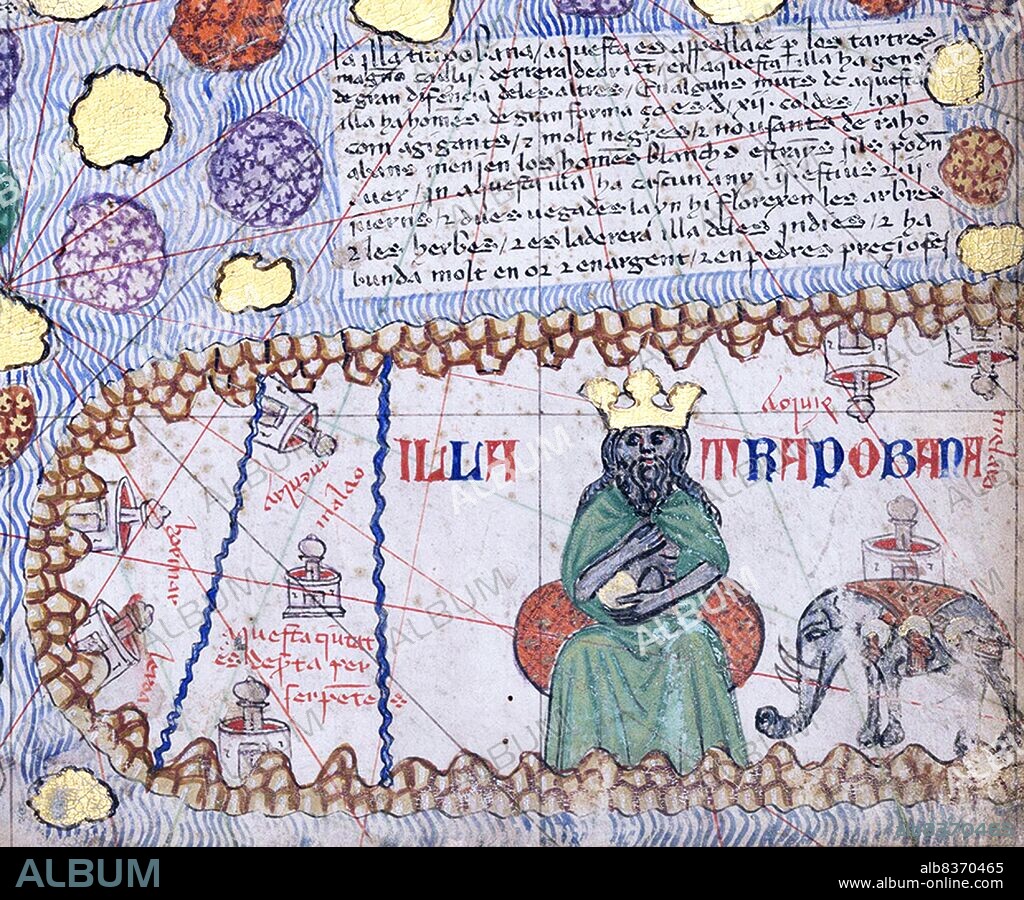 la illa trapobana / aquesta es appellade p los tartres
magno caulii · derrera de orient / en aquesta illa ha gens
de gran diferencia deles altres / En alguns munts de aquesta
illa ha homes de gran forma ço es d / xii · coldes / axi
com agigants / z molt negres / z no usants de raho
abans menien los homes blanchs estrays sils podn
auer / in aquesta illa ha cascun any · ij · estius z · ij ·
juerns / z dues vegades layn hi florexen los arbres
z les herbes / z es la derera illa deles jndies / z ha
bunda molt en or z en argent / z en pedres precioses
ILLA TRAPOBANA
malao
aquesta ciutat
es depta per
serpetes
ALBUM
alb8370465
www.album-online.com